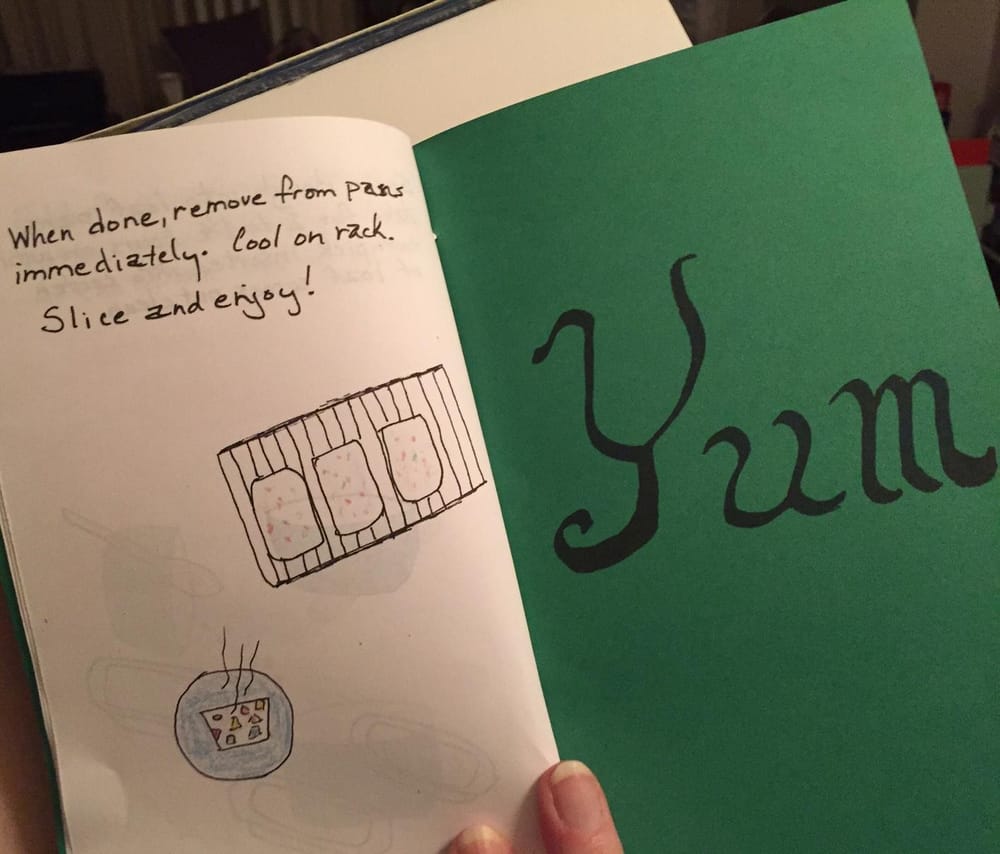 When done, remove from pans
immediately. Cool on rack.
Slice and enjoy!
Yum